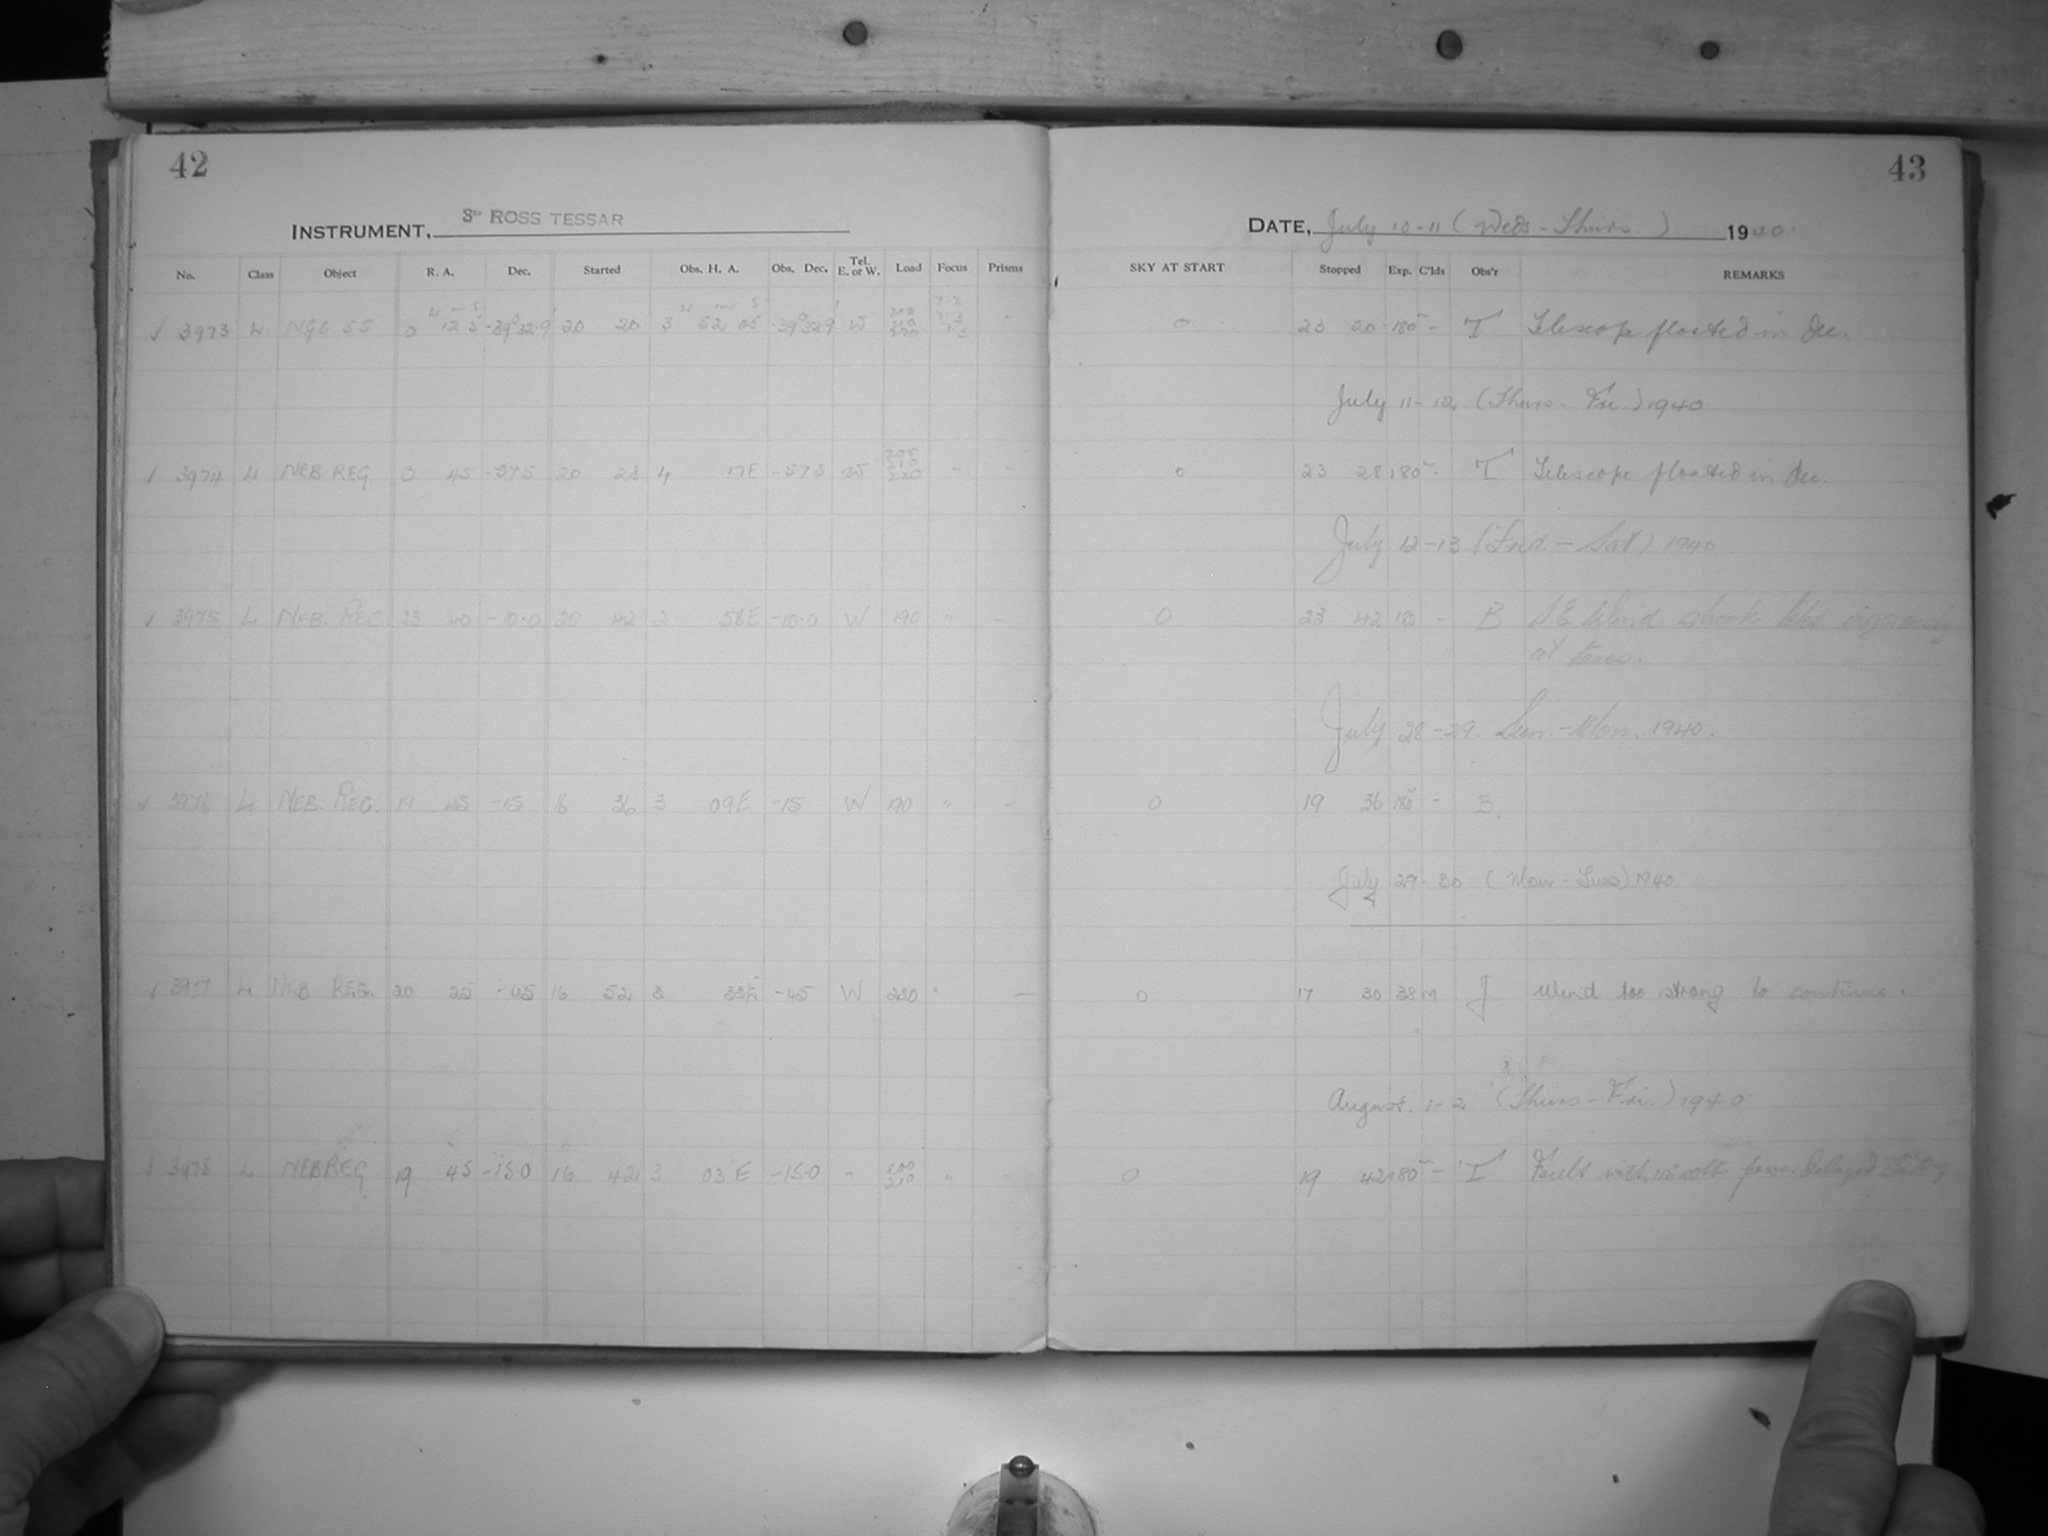 42
43
INSTRUMENT, 3" ROSS TESSAR
DATE, July 10-11 (Weds - Thurs.) 1940
No. Class Object R. A. Dec. Started Obs. H. A. Obs. Dec. Tel. E. or W. Load Focus Prisms SKY AT START Stopped Exp. C'lds Obs'r REMARKS
√ 3973 L NGC 55 0 12 5 -39° 32.9' 20 20 3 52 05 -39° 32.9' W 0 23 20 180 - T Telescope floated in Dec.
July 11-12 (Thurs - Fri.) 1940
√ 3974 L NEB REG 0 45 -57.5 20 28 4 17E -57.5 W 200 210 220 " - 0 23 28 180 - T Telescope floated in Dec.
July 12-13 (Frid. - Sat.) 1940
√ 3975 L NEB. REG 23 40 -10.0 20 42 2 58E -10.0 W 190 " - 0 23 42 180 - B S.E. Wind shook tube vigorously
at times.
July 28-29. Sun. - Mon. 1940.
√ 3976 L NEB. REG. 19 45 -15 16 36 3 09E -15 W 190 " - 0 19 36 180 - B.
July 29-30 (Mon - Tues) 1940
√ 3977 L NEB REG. 20 25 -45 16 52 3 33E -45 W 220 " - 0 17 30 38m J Wind too strong to continue.
August. 1-2 (Thurs - Fri.) 1940
√ 3978 L NEB REG 19 45 -15.0 16 42 3 03 E -15.0 " 200 210 " 0 19 42 180 - T Fault with volts power delayed